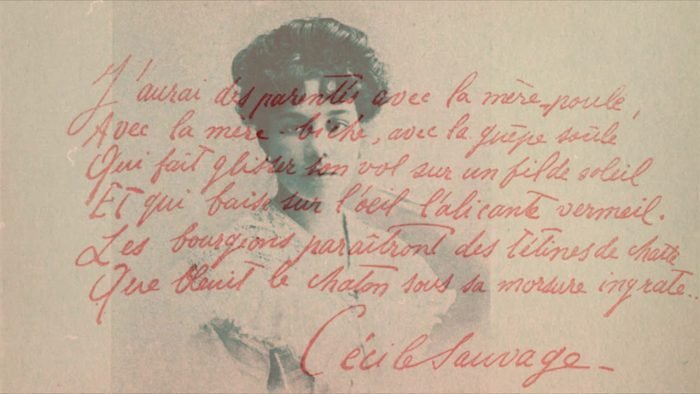 J'aurai des parentés avec la mère-poule,
Avec la mère-biche, avec la guêpe soûle
Qui fait glisser son vol sur un fil de soleil
Et qui baise sur l'oeil l'alicante vermeil.
Les bourgeons paraîtront des tétines de chatte
Que bleuit le chaton sous sa morsure ingrate.
Cécile Sauvage